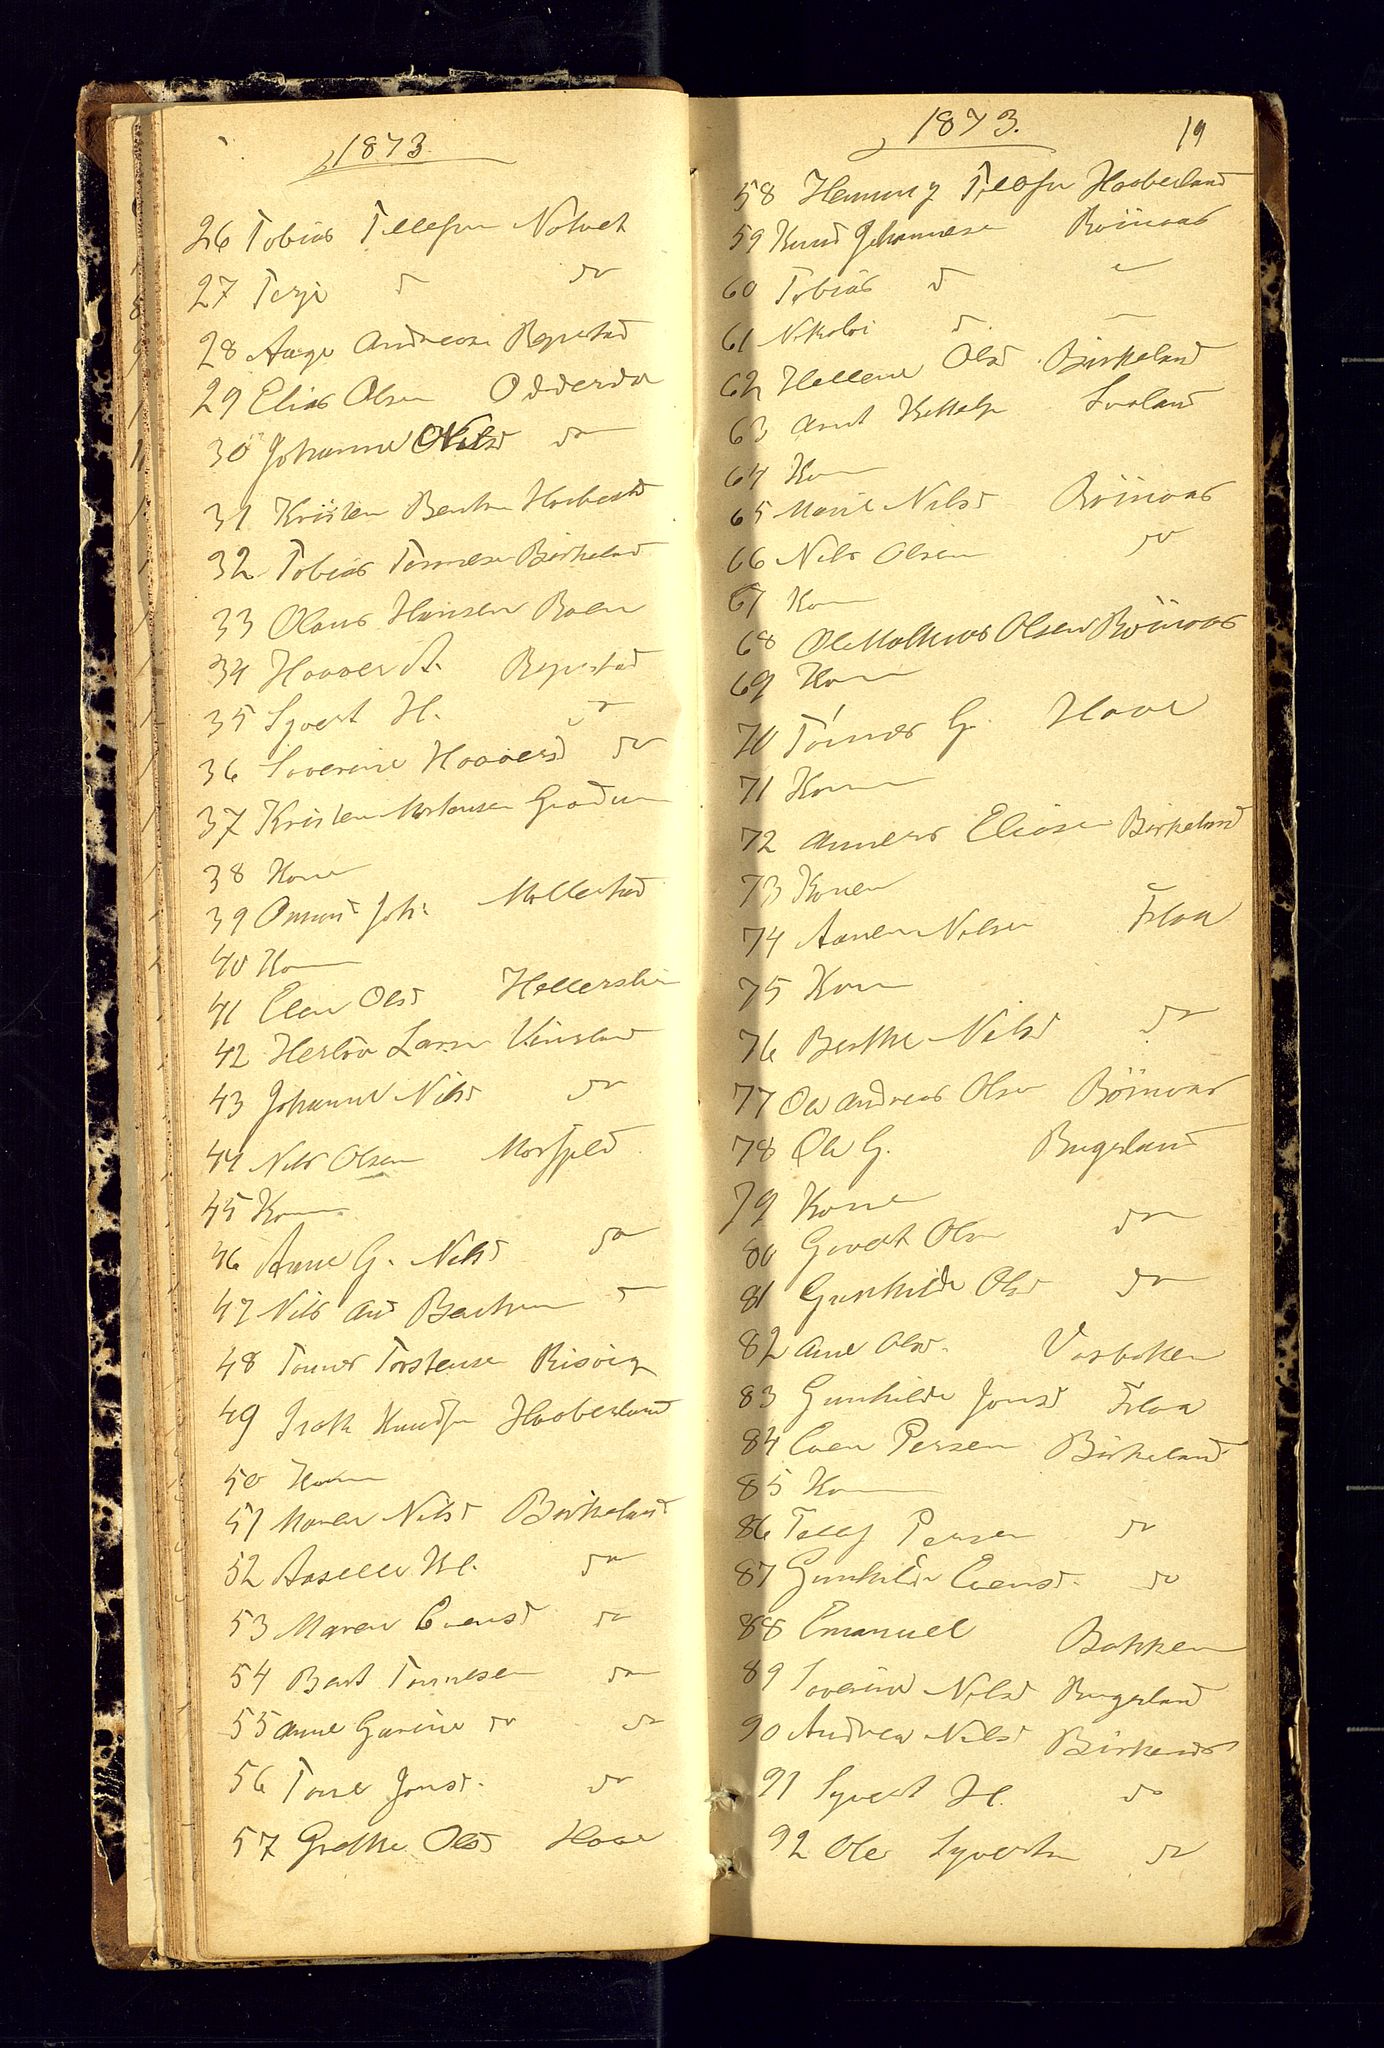 1873.
26 Tobias Tellefsen Nolvet
27 Terje do do
28 Aage Andreas Repstad
29 Elias Olsen Odderdal
30 Johanne Nilsd do
31 Kristen Bentsen
32 Tobias Tønnesen Birkeland
33 Olaus Hansen Boen
34 Haaver A. Repstad
35 Syvert H. do
36 Severine Haaversd do
37 Kristen Mortensen Graadum
38 Kone
39 Omund Joh. Mollestad
40 Kone
41 Elen Olsd
42 Herlov Larsen Vinsland
43 Johanne Nilsd do
44 Nils Olsen Mosfjeld
45 Kone
46 Anne G. Nilsd do
47 Nils And Bentsen do
48 Tønnes Torstensen Risøien
49 Isak Knudsen Haaberland
50 Konen
51 Maren Nilsd Birkeland
52 Aaselle Kl. do
53 Maren Evensd do
54 Bent Tønnesen do
55 Anne Gurine do do
56 Tone Jonsd. do
57 Grethe Olsd Haae
1873. 19
58 Henning Tellefsen Haaberland
59 Knud Johannesen Böinaas
60 Tobias do
61 Nikolai do.
62 Hellene Olsd Birkeland
63 Arnt Kettelsen
64 Kone
65 Marie Nilsd Böinaas
66 Nils Olsen do
67 Kone
68 Ole Mathias Olsen Böinaas
69 Kone
70 Tönnes G. Haae
71 Konen
72 Anners Eliasen Birkeland
73 Konen
74 Aanen Nilsen Flaa
75 Kone
76 Berthe Nilsd do
77 Ole Andreas Olsen Böinaas
78 Ole G. Bugeland
79 Kone
80 Govert Olsen do
81 Gunhilde Olsd do
82 Ane Olsd. Vasbakken
83 Gunhilde Jonsd Flaa
84 Even Persen Birkeland
85 Kone
86 Tellef Persen do
87 Gunhilde Evensd. do
88 Emanuel Bakken
89 Severine Nilsd Bugeland
90 Andrea Nilsd Birkeland
91 Syvert H. do
92 Ole Syvertsen do